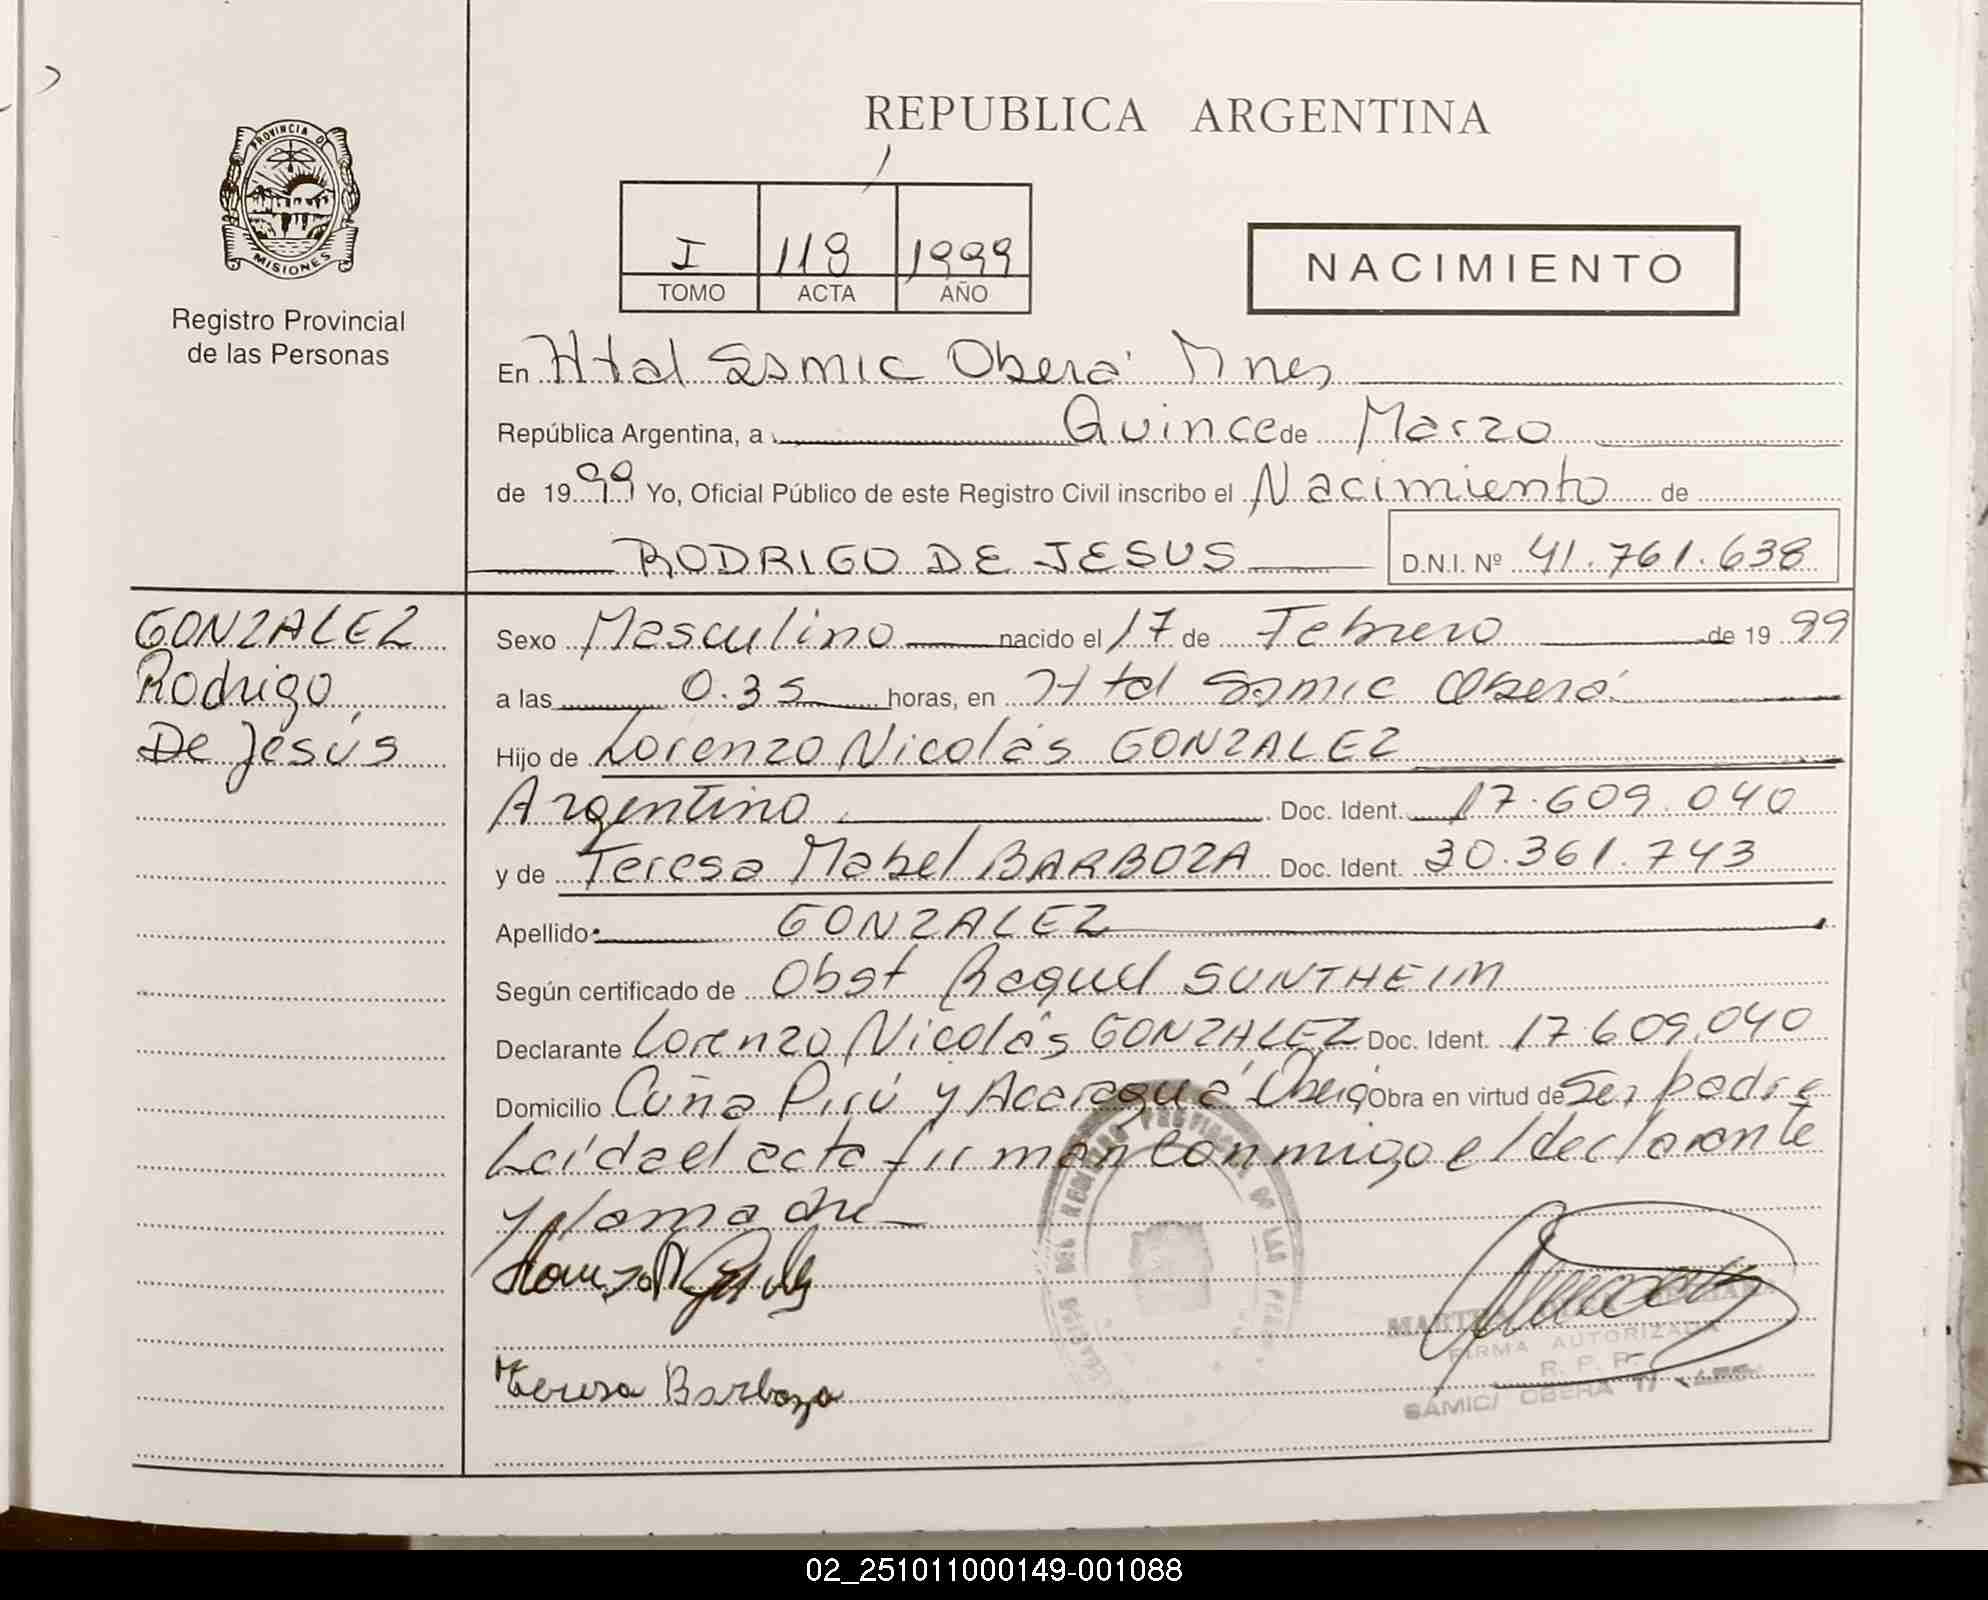 PROVINCIA DE
MISIONES
Registro Provincial
de las Personas
REPUBLICA ARGENTINA
I 118 1999
TOMO ACTA AÑO
NACIMIENTO
En Htal Samic Oberá Mnes
República Argentina, a Quince de Marzo
de 1999 Yo, Oficial Público de este Registro Civil inscribo el Nacimiento de
RODRIGO DE JESUS D.N.I. Nº 41.761.638
GONZALEZ
Rodrigo
De Jesús
Sexo Masculino nacido el 17 de Febrero de 1999
a las 0.35 horas, en Htal Samic Oberá
Hijo de Lorenzo Nicolás GONZALEZ
Argentino Doc. Ident. 17.609.040
y de Teresa Mabel BARBOZA Doc. Ident. 30.361.743
Apellido GONZALEZ
Según certificado de Obst Raquel SUNTHEIM
Declarante Lorenzo Nicolás GONZALEZ Doc. Ident. 17.609.040
Domicilio Cuña Pirú y Acaraguá Oberá Obra en virtud de Ser padre
Leída el acta firman conmigo el declarante
y la madre
Teresa Barboza
FIRMA AUTORIZADA
R. P. P.
SAMIC/ OBERA
02_251011000149-001088